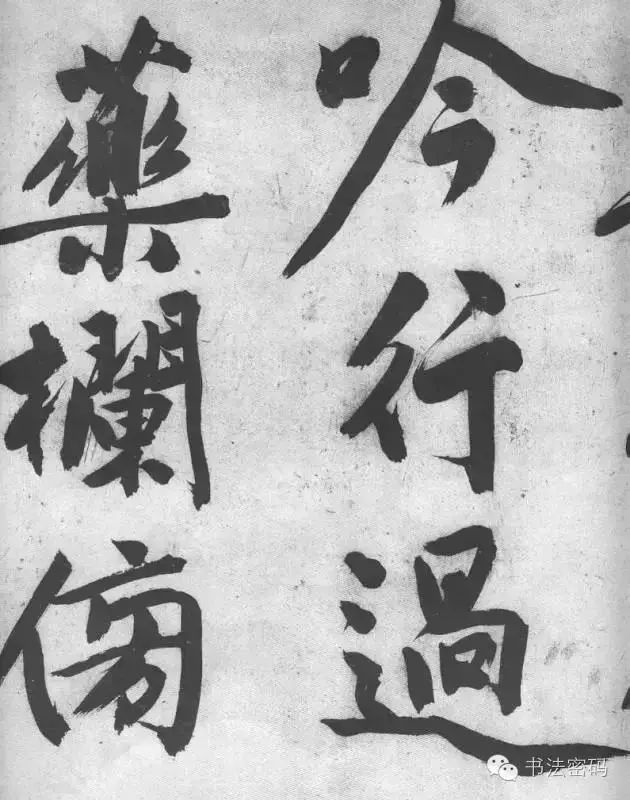 吟行過
藥欄傍
书法密码